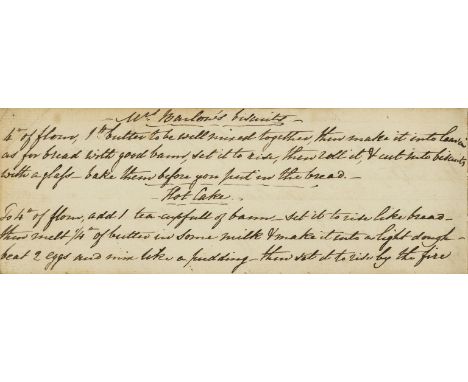 Mrs. Barlow's biscuits
4lb of flour, 1lb butter to be well mixed together, then make it into
as for bread with good barm, set it to rise, then roll it, & cut into biscuits
with a glass - bake them before you put in the bread -
Hot Cake.
To 4lb of flour, add 1 tea cupfull of barm - set it to rise like bread -
then melt 1/4lb of butter in some milk & make it into a light dough -
beat 2 eggs and mix like a pudding - then set it to rise by the fire